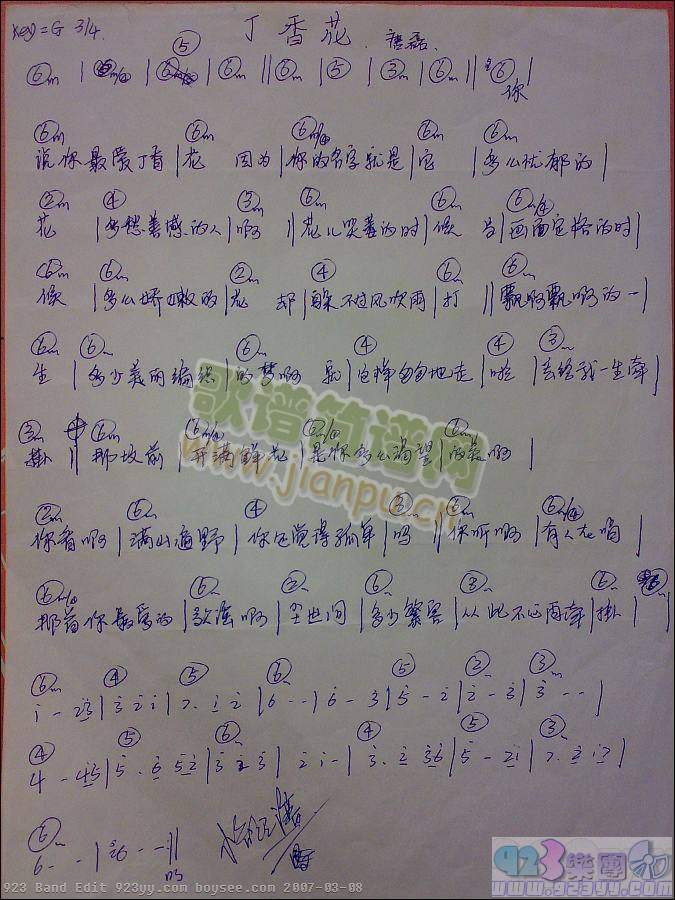 Key=G 3/4. 丁香花 . 唐磊
⑤
⑥m | | | ⑥m || ⑥m | ⑤ | ③m | ⑥m || ⑥ |
你
⑥m ⑥m ⑥m/④ ⑥m ⑥m
说你最爱丁香 | 花 因为 | 你的名字就是 | 它 | 多么忧郁的 |
②m ④ ③m ⑥m ⑥m ⑥m/④
花 | 多愁善感的人 | 啊 || 花儿枯萎的时 | 候 当 | 画面定格的时 |
⑥m ⑥m ②m ④ ⑥m ⑥m
候 | 多么娇嫩的 | 花 却 | 躲不过风吹雨 | 打 || 飘啊飘啊的一 |
⑥m ⑥m ⑥m ④ ④ ③m
生 | 多少美丽编织 | 的梦啊 就 | 这样匆匆地走 | 啦 | 丢给我一生牵 |
③m ⑥m ⑥m/④ ⑥m/④ ⑥m
挂 || 那坟前 | 开满鲜花 | 是你多么渴望 | 的美啊 |
②m ⑥m ④ ③m ⑥m ⑥m/④
你看啊 | 满山遍野 | 你还觉得孤单 | 吗 || 你听啊 | 有人在唱 |
⑥m/④ ⑥m ②m ⑥m ③m ⑥m
那首你最爱的 | 歌谣啊 | 尘世间 | 多少繁芜 | 从此不必再牵 | 挂 |
⑥m ④ ⑤ ⑥m ⑤ ②m ③m
i - 23 | 3 2 i | 7. i 2 | 6 - - | 6 - 3 | 5 - 2 | 2 - 3 | 3 - - |
④ ⑤ ⑥m ④ ⑤ ③m
4 - 45 | 5. 6 52 | 3 2 3 | 2 i - | 3. 2 36 | 5 - 2i | 7. 2 i7 |
⑥m
6 - - | 26 - - ||
吗
歌谱简谱网
www.jianpu.cn
923 Band Edit 923yy.com boysee.com 2007-03-08
923樂團
www.923yy.com